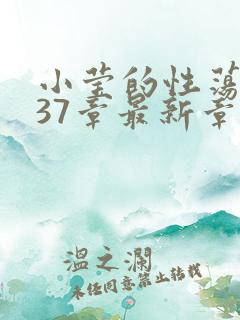 小莹的性荡
37章最新章
温之澜
未经同意禁止转载